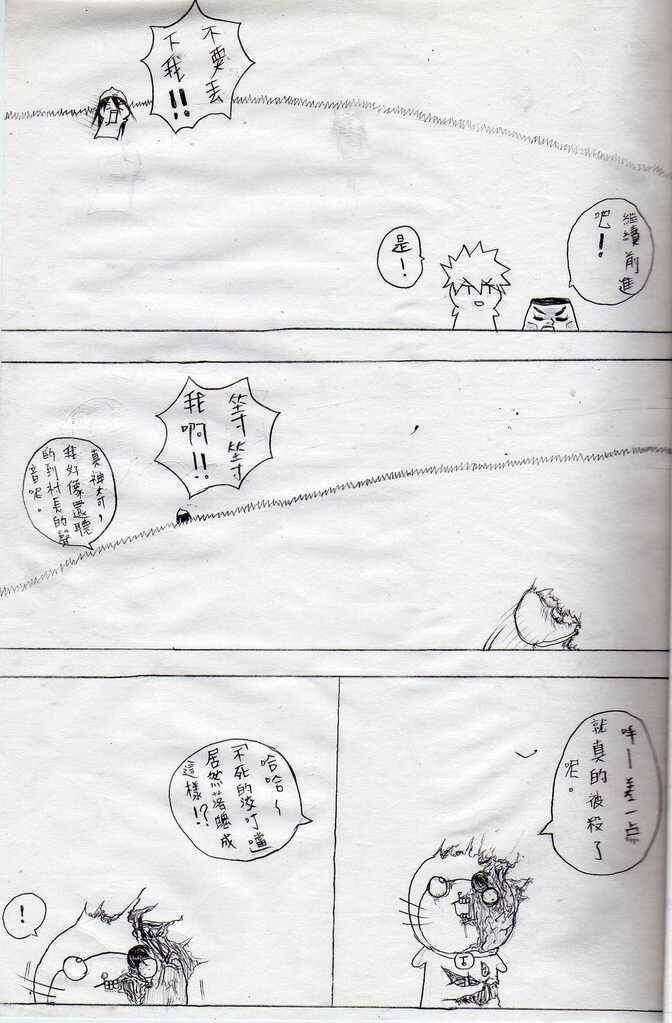 不要丟
下我!!
繼續前進
吧!
是!
等等
我啊!!
真神奇,
我好像還聽
的到村長的聲
音呢。
呼ー差一点
就真的被殺了
呢。
哈哈~
「不死的叮噹」
居然落魄成
這樣!?
!